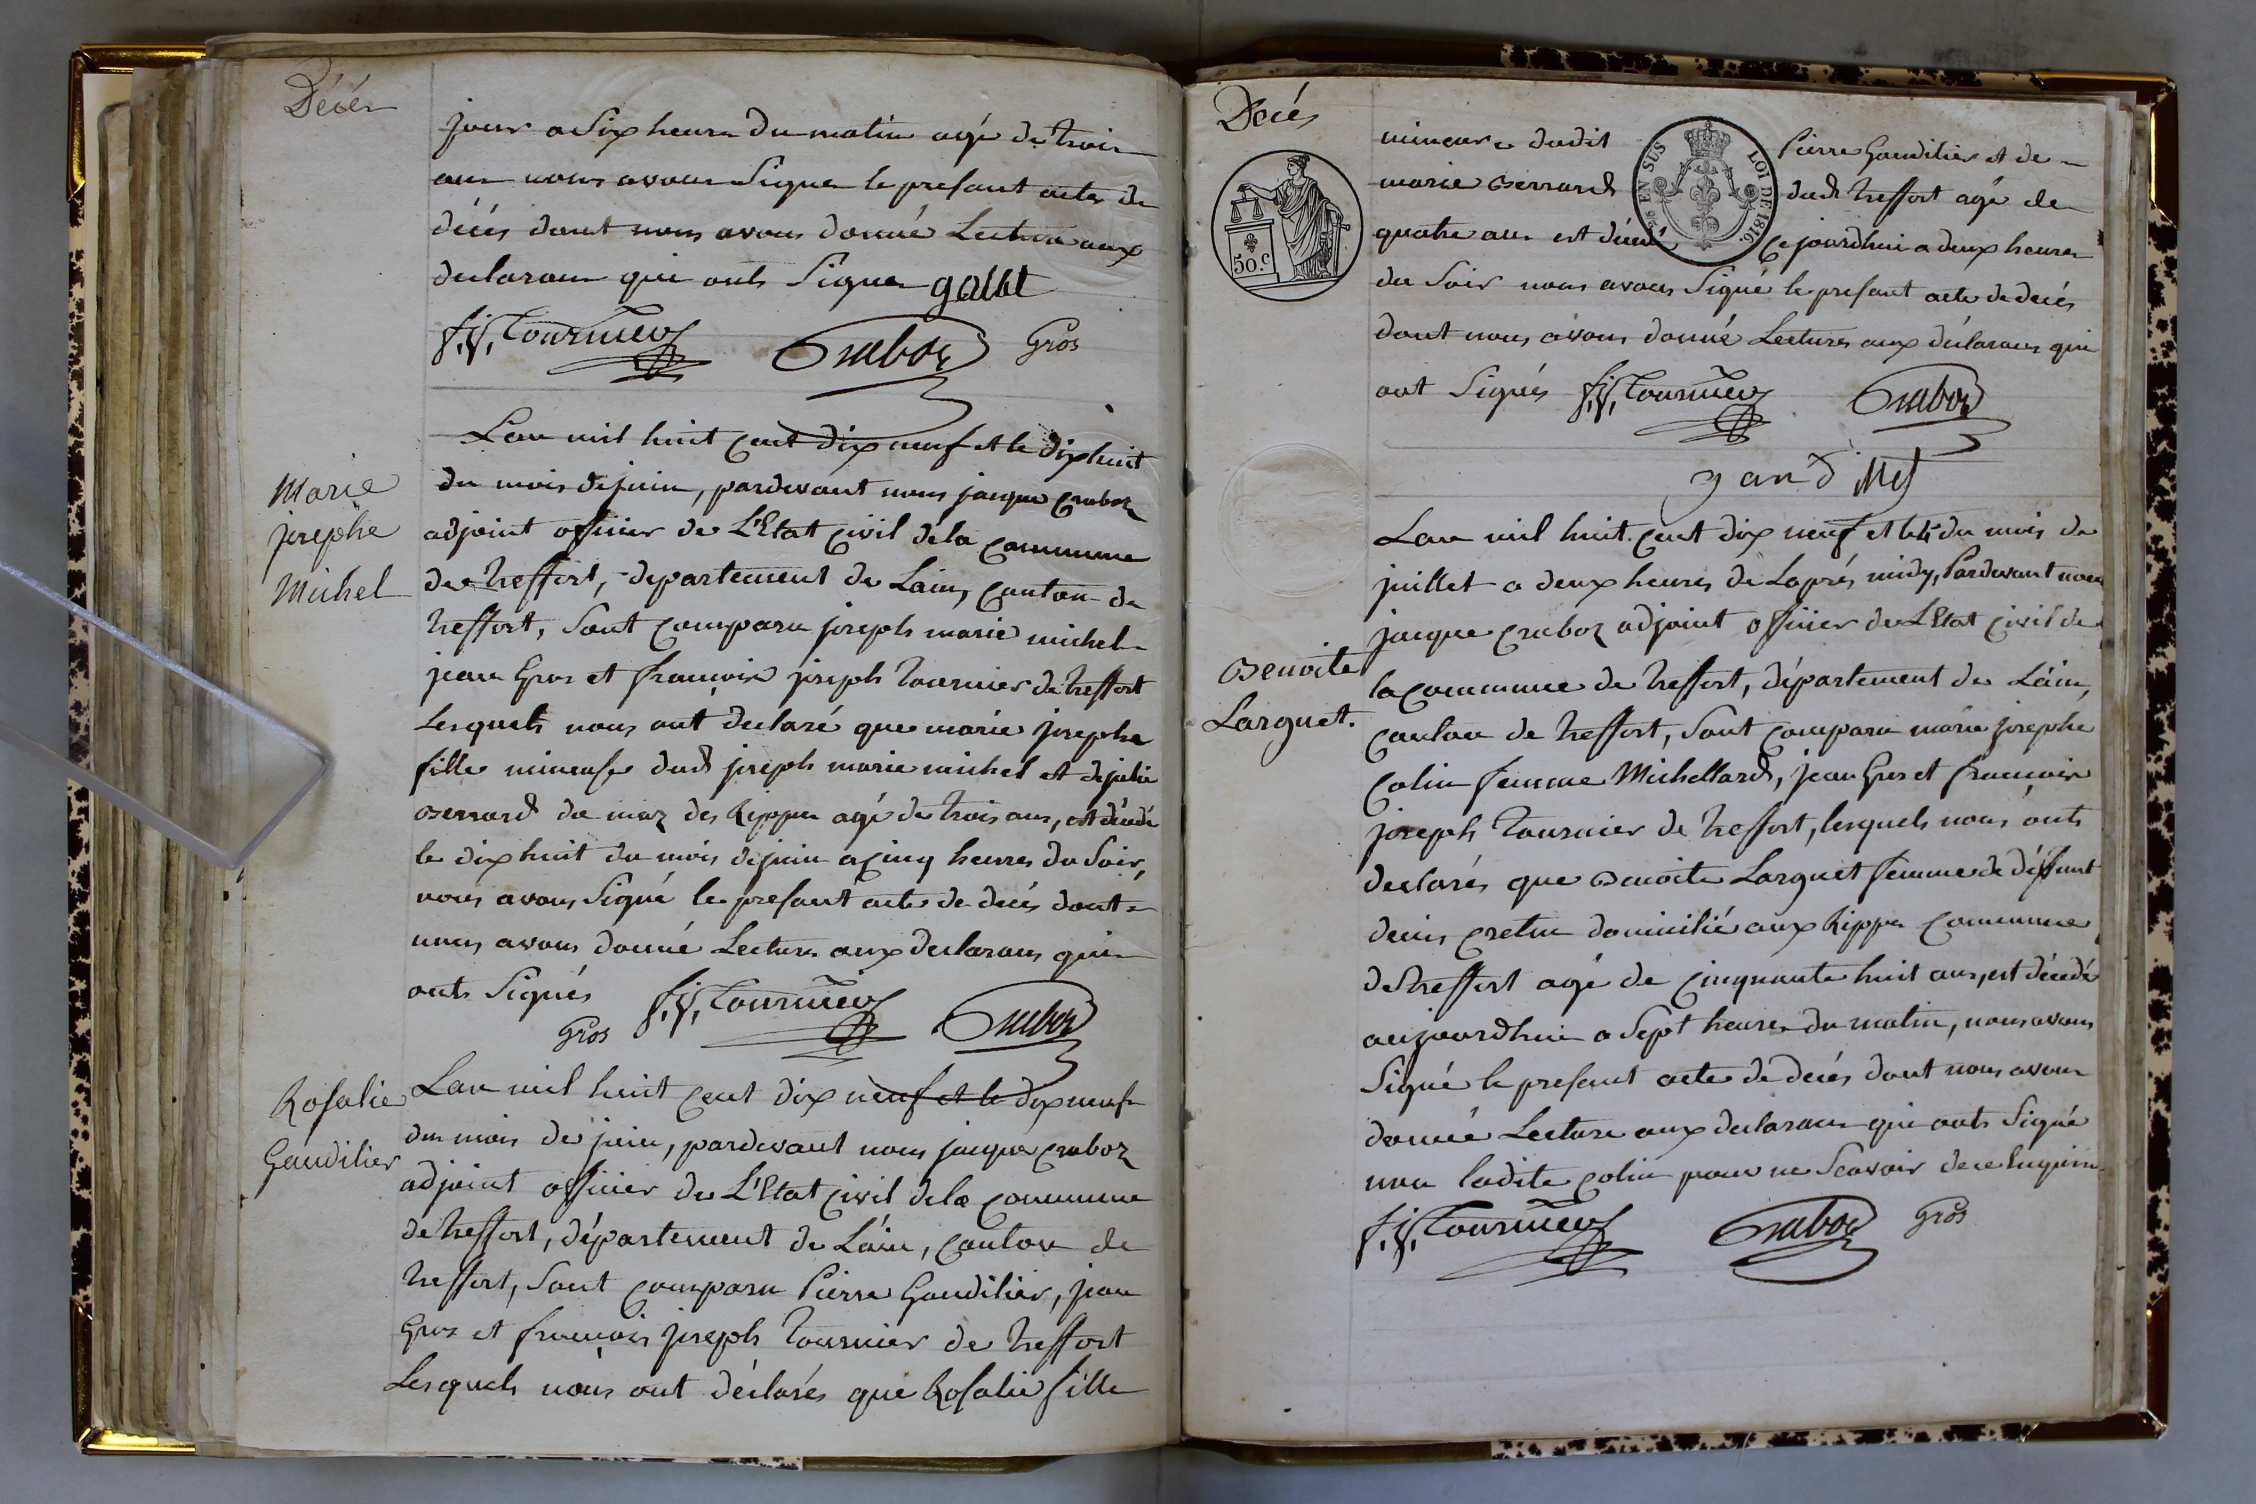 Décés
jour a Six heures du matin agé de trois
ans nous avons Signer le presant acte de
décés dont nous avons donné Lecture aux
declarans qui onts Signer gallet
f.j. Tournier Craboz Gros
Marie
josephe
Michel
L'an mil huit cent dix neuf et le dix huit
du mois de juin, pardevant nous jacque Craboz
adjoint officier de L'Etat Civil dela commune
de treffort, departement de Lain, Canton de
treffort, Sont comparu joseph marie michel
jean Gros et francois joseph tournier de treffort
Lesquels nous ont declaré que marie josephe
fille mineuse dud joseph marie michel et de julie
Berrard du maz des Rippes agé de trois ans, est décédé
le dix huit du mois de juin a cinq heures du Soir,
nous avons Signé le presant acte de decés dont
nous avons donné Lecture aux declarans qui
onts Signés f.j. Tournier Craboz
Gros
Rosalie
Gaudilier
Lan mil huit cent dix neuf et le dix neuf
du mois de juin, pardevant nous jacque Craboz
adjoint officier de L'Etat Civil dela commune
de treffort, département de Láin, Canton de
treffort, Sont comparu Pierre Gaudilier, jean
Gros et francois joseph tournier de treffort
Lesquels nous ont déclarés que Rosalie fille
Decés
50.c
EN SUS LOI DE 1816
mineure dudit Pierre Gaudilier et de
marie Berrard dud treffort agé de
quatre ans est décédé cejourdhui a deux heures
du Soir nous avons Signé le presant acte de decés
dont nous avons donné Lectures aux déclarans qui
ont Signés f.j. Tournier Craboz
Lan mil huit cent dix neuf et le du mois de
juillet a deux heures de Laprés midy, Pardevant nous
jacque Craboz adjoint officier de L'Etat Civil de
Benoite
Larguet.
la Commune de treffort, département de Láin,
Canton de treffort, Sont comparu marie josephe
Colin femme Michellard, jean Gros et francois
joseph tournier de treffort, lesquels nous onts
declarés que Benoite Larguet femme de deffunt
denis Cretin domicilié aux Rippes Commune
de treffort agé de Cinquante huit ans, est décédé
aujourdhui a Sept heures du matin, nous avons
Signé le presant acte de decés dont nous avons
donné Lecture aux declarans qui onts Signé
non ladite Colin pour ne Scavoir de ce Enquise
f.j. Tournier Craboz Gros